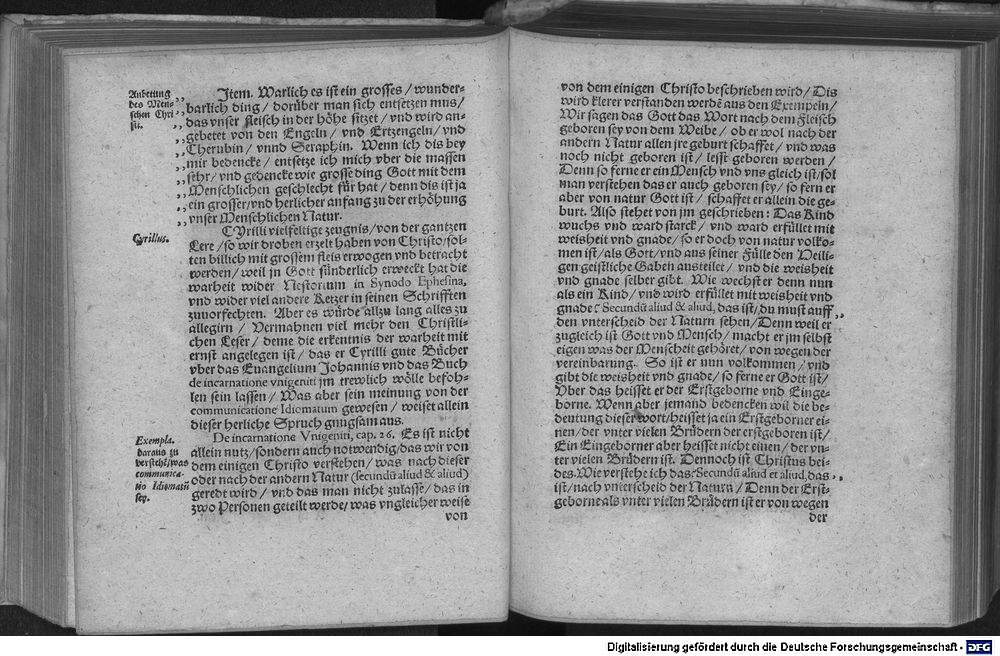 Anbetung
des Men-
schen Chri-
sti.
Item. Warlich es ist ein grosses / wunder-
barlich ding / dorüber man sich entsetzen mus /
das vnser fleisch in der höhe sitzet / vnd wird an-
gebetet von den Engeln / vnd Ertzengeln / vnd
Cherubin / vnnd Seraphin. Wenn ich dis bey
mir bedencke / entsetze ich mich vber die massen
sehr / vnd gedencke wie grosse ding Gott mit dem
Menschlichen geschlecht für hat / denn dis ist ja
ein grosser / vnd herlicher anfang zu der erhöhung
vnser Menschlichen Natur.
Cyrillus.
CYrilli vielfeltige zeugnis / von der gantzen
Lere / so wir droben erzelt haben von Christo / sol-
ten billich mit grossem fleis erwogen vnd betracht
werden / weil jn Gott sünderlich erweckt hat die
warheit wider Nestorium in Synodo Ephesina,
vnd wider viel andere Ketzer in seinen Schrifften
zuuorfechten. Aber es würde allzu lang alles zu
allegirn / Vermahnen viel mehr den Christli-
chen Leser / deme die erkentnis der warheit mit
ernst angelegen ist / das er Cyrilli gute Bücher
vber das Euangelium Johannis vnd das Buch
de incarnatione vnigeniti jm trewlich wölle befoh-
len sein lassen / Was aber sein meinung von der
communicatione Idiomatum gewesen / weiset allein
dieser herliche Spruch gnugsam aus.
Exempla.
daraus zu
verstehē / was
communica-
tio Idiomatū
sey.
De incarnatione Vnigeniti, cap. 26. Es ist nicht
allein nutz / sondern auch notwendig / das wir von
dem einigen Christo verstehen / was nach dieser
oder nach der andern Natur (secundū aliud & aliud)
geredt wird / vnd das man nicht zulasse / das in
zwo Personen geteilt werde / was vngleicher weise
von
von dem einigen Christo beschrieben wird / Dis
wird klerer verstanden werdē aus den Exempeln /
Wir sagen das Gott das Wort nach dem Fleisch
geboren sey von dem Weibe / ob er wol nach der
andern Natur allen jre geburt schaffet / vnd was
noch nicht geboren ist / lesst geboren werden /
Denn so ferne er ein Mensch vnd vns gleich ist / sol
man verstehen das er auch geboren sey / so fern er
aber von natur Gott ist / schaffet er allein die ge-
burt. Also stehet von jm geschrieben: Das Kind
wuchs vnd ward starck / vnd ward erfüllet mit
weisheit vnd gnade / so er doch von natur volko-
men ist / als Gott / vnd aus seiner Fülle den Heili-
gen geistliche Gaben austeilet / vnd die weisheit
vnd gnade selber gibt. Wie wechst er denn nun
als ein Kind / vnd wird erfüllet mit weisheit vnd
gnade? Secundū aliud & aliud, das ist / du must auff
den vnterscheid der Naturn sehen / Denn weil er
zugleich ist Gott vnd Mensch / macht er jm selbst
eigen was der Menscheit gehöret / von wegen der
vereinbarung. So ist er nun volkommen / vnd
gibt die weisheit vnd gnade / so ferne er Gott ist /
Vber das heisset er der Erstgeborne vnd Einge-
borne. Wenn aber jemand bedencken wil die be-
deutung dieser wort / heisset ja ein Erstgeborner ei-
nen / der vnter vielen Brüdern der erstgeboren ist /
Ein Eingeborner aber heisset nicht einen / der vn-
ter vielen Brüdern ist. Dennoch ist Christus bei-
des. Wie verstehe ich das? Secundū aliud et aliud, das
ist / nach vnterscheid der Naturn / Denn der Erst-
geborne als vnter vielen Brüdern ist er von wegen
der
Digitalisierung gefördert durch die Deutsche Forschungsgemeinschaft - DFG